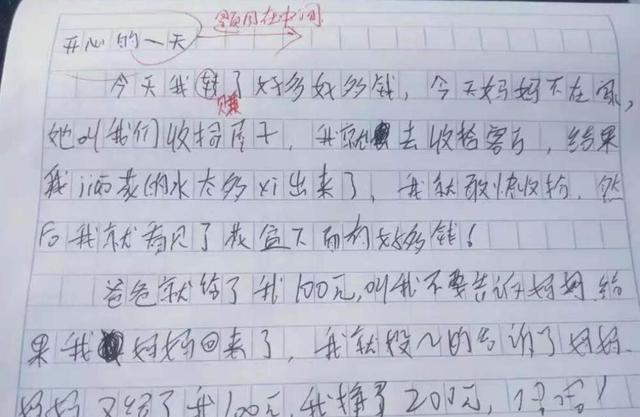 题目在中间
开心的一天
今天我钱了好多好多钱，今天妈妈不在家，
赚
她叫我们收拾房子，我就去收拾客古，结果
我jiǎo花的水太多xi出来了，我就敢快收拾，然
后我就看见了花盆下面有好多钱！
爸爸就给了我100元，叫我不要告诉妈妈结
果我妈妈回来了，我就投~的告诉了妈妈
妈妈又给了我100元，我挣了200元，